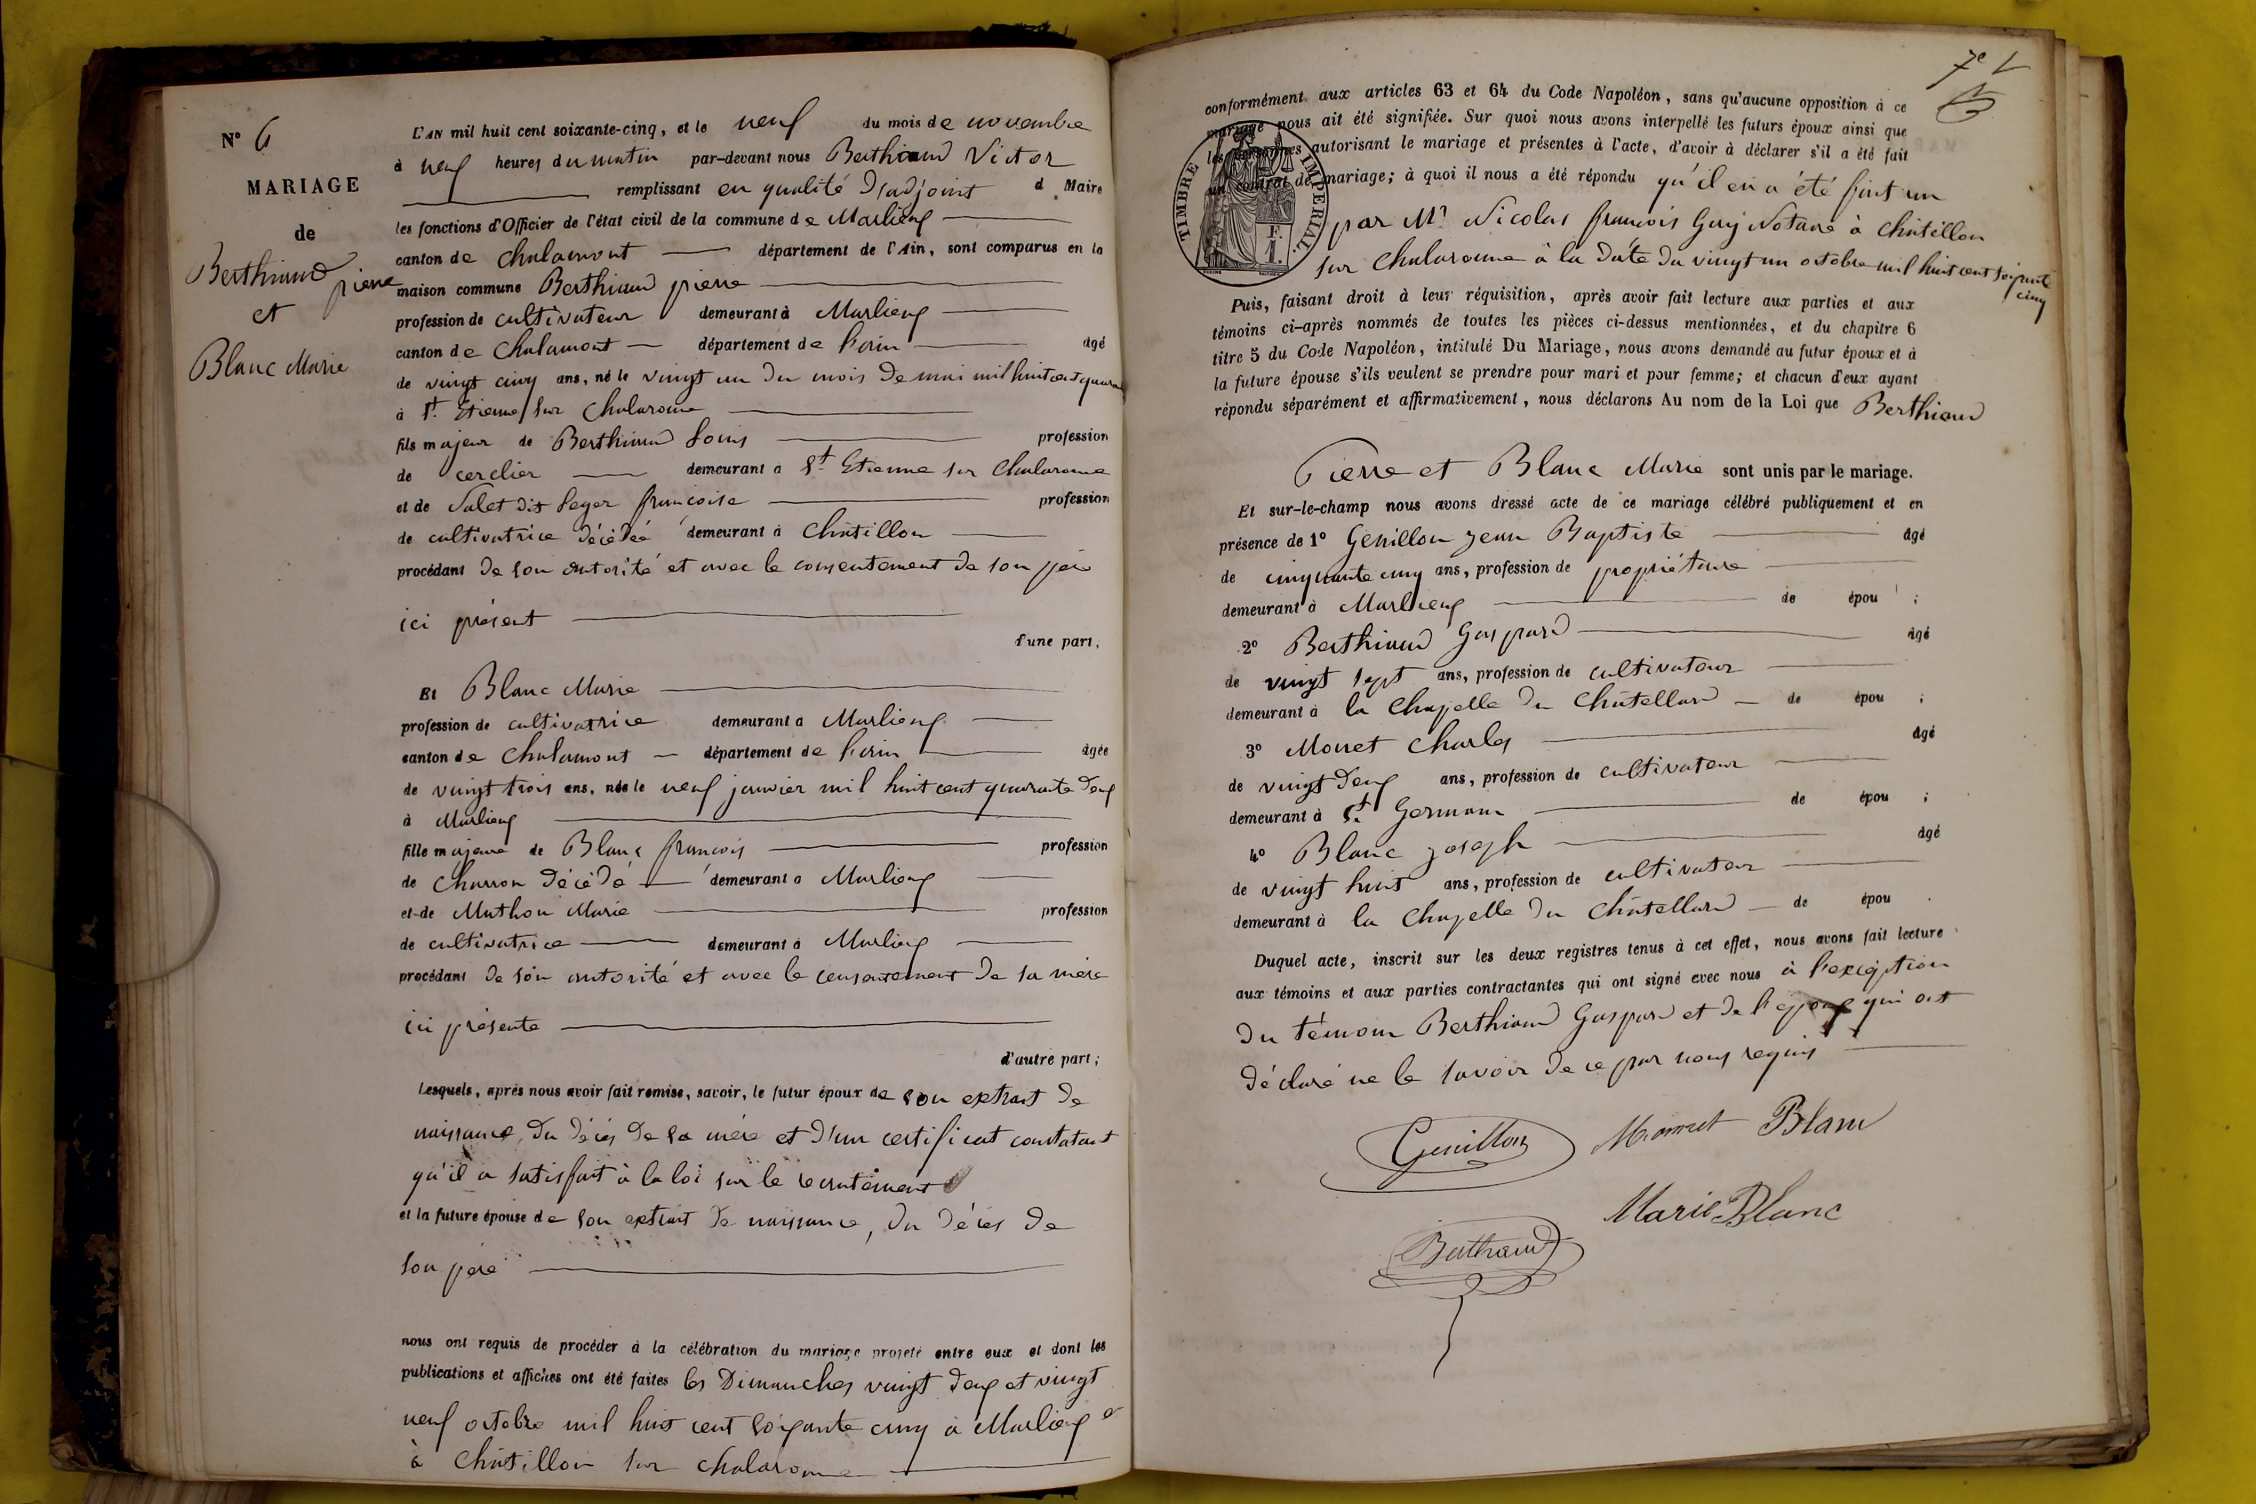 N° 6
MARIAGE
de
Berthiaud
pierre
et
Blanc Marie
L'AN mil huit cent soixante-cinq, et le neuf du mois de novembre
à neuf heures du matin par-devant nous Berthiaud Victor
remplissant en qualité d'adjoint d Maire
les fonctions d'Officier de l'état civil de la commune de Marlieux
canton de Chalamont département de l'Ain, sont comparus en la
maison commune Berthiaud pierre
profession de cultivateur demeurant à Marlieux
canton de Chalamont département de l'ain âgé
de vingt cinq ans, né le vingt un du mois de mai mil huit cent quarante
à St Etienne sur Chalaronne
fils majeur de Berthiaud Louis profession
de cerclier demeurant à St Etienne sur Chalaronne
et de Salet dit Leger françoise profession
de cultivatrice décédée demeurant à Châtillon
procédant de son autorité et avec le consentement de son père
ici présent
d'une part,
Et Blanc Marie
profession de cultivatrice demeurant à Marlieux
canton de Chalamont département de l'ain âgée
de vingt trois ans, née le neuf janvier mil huit cent quarante deux
à Marlieux
fille majeure de Blanc françois profession
de Charron décédé demeurant à Marlieux
et de Mathon Marie profession
de cultivatrice demeurant à Marlieux
procédant de son autorité et avec le consentement de sa mère
ici présente
d'autre part;
Lesquels, après nous avoir fait remise, savoir, le futur époux de son extrait de
naissance, du décès de sa mère et d'un certificat constatant
qu'il a satisfait à la loi sur le recrutement
et la future épouse de son extrait de naissance, du décès de
son père
nous ont requis de procéder à la célébration du mariage projeté entre eux et dont les
publications et affiches ont été faites les Dimanches vingt deux et vingt
neuf octobre mil huit cent soixante cinq à Marlieux et
à Châtillon sur Chalaronne
7e
conformément aux articles 63 et 64 du Code Napoléon, sans qu'aucune opposition à ce
mariage nous ait été signifiée. Sur quoi nous avons interpellé les futurs époux ainsi que
les personnes autorisant le mariage et présentes à l'acte, d'avoir à déclarer s'il a été fait
un contrat de mariage; à quoi il nous a été répondu qu'il en a été fait un
TIMBRE IMPERIAL.
par Mr Nicolas françois Guy Notaire à Châtillon
sur Chalaronne à la date du vingt un octobre mil huit cent soixante
cinq
Puis, faisant droit à leur réquisition, après avoir fait lecture aux parties et aux
témoins ci-après nommés de toutes les pièces ci-dessus mentionnées, et du chapitre 6
titre 5 du Code Napoléon, intitulé Du Mariage, nous avons demandé au futur époux et à
la future épouse s'ils veulent se prendre pour mari et pour femme; et chacun d'eux ayant
répondu séparément et affirmativement, nous déclarons Au nom de la Loi que Berthiaud
Pierre et Blanc Marie sont unis par le mariage.
Et sur-le-champ nous avons dressé acte de ce mariage célébré publiquement et en
présence de 1° Genillon jean Baptiste âgé
de cinquante cinq ans, profession de propriétaire
demeurant à Marlieux de épou ;
2° Berthiaud Gaspard âgé
de vingt sept ans, profession de cultivateur
demeurant à la Chapelle du Châtellard de épou ;
3° Monet Charles âgé
de vingt deux ans, profession de cultivateur
demeurant à St Germain de épou ;
4° Blanc joseph âgé
de vingt huit ans, profession de cultivateur
demeurant à la Chapelle du Châtellard de épou
Duquel acte, inscrit sur les deux registres tenus à cet effet, nous avons fait lecture
aux témoins et aux parties contractantes qui ont signé avec nous à l'exception
du témoin Berthiaud Gaspard et de l'epoux qui ont
déclaré ne le savoir de ce par nous requis
Genillon Blanc
Marie Blanc
Berthiaud